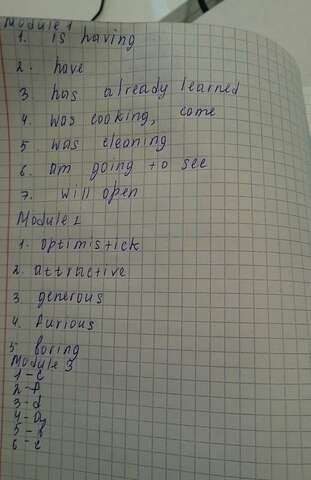 Module 1
1. is having
2. have
3 has already learned
4 was cooking, come
5 was cleaning
6 am going to see
7. will open
Module 2
1. optimistick
2. attractive
3 generous
4. furious
5 boring
Module 3
1-c
2-f
3-d
4-a
5-b
6-e